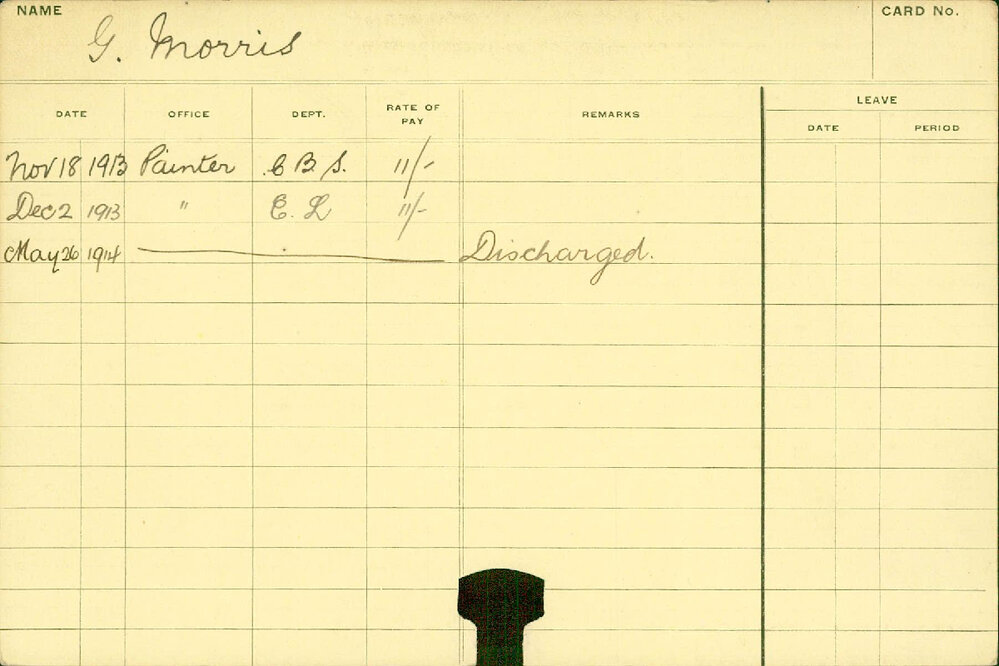 NAME G. Morris CARD No.
DATE OFFICE DEPT. RATE OF PAY REMARKS LEAVE
DATE PERIOD
Nov 18 1913 Painter C B S. 11/-
Dec 2 1913 " E. L 11/-
May 26 1914 Discharged.